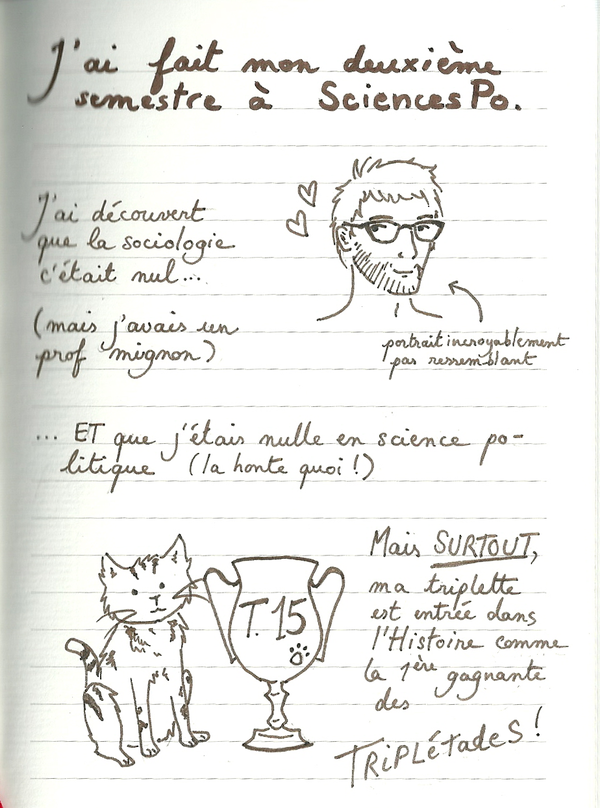 J'ai fait mon deuxième
semestre à SciencesPo.
J'ai découvert
que la sociologie
c'était nul...
(mais j'avais un
prof mignon)
portrait incroyablement
pas ressemblant
... ET que j'étais nulle en science po-
litique (la honte quoi !)
T. 15
Mais SURTOUT,
ma triplette
est entrée dans
l'Histoire comme
la 1ère gagnante
des
TRiPLéTadeS !